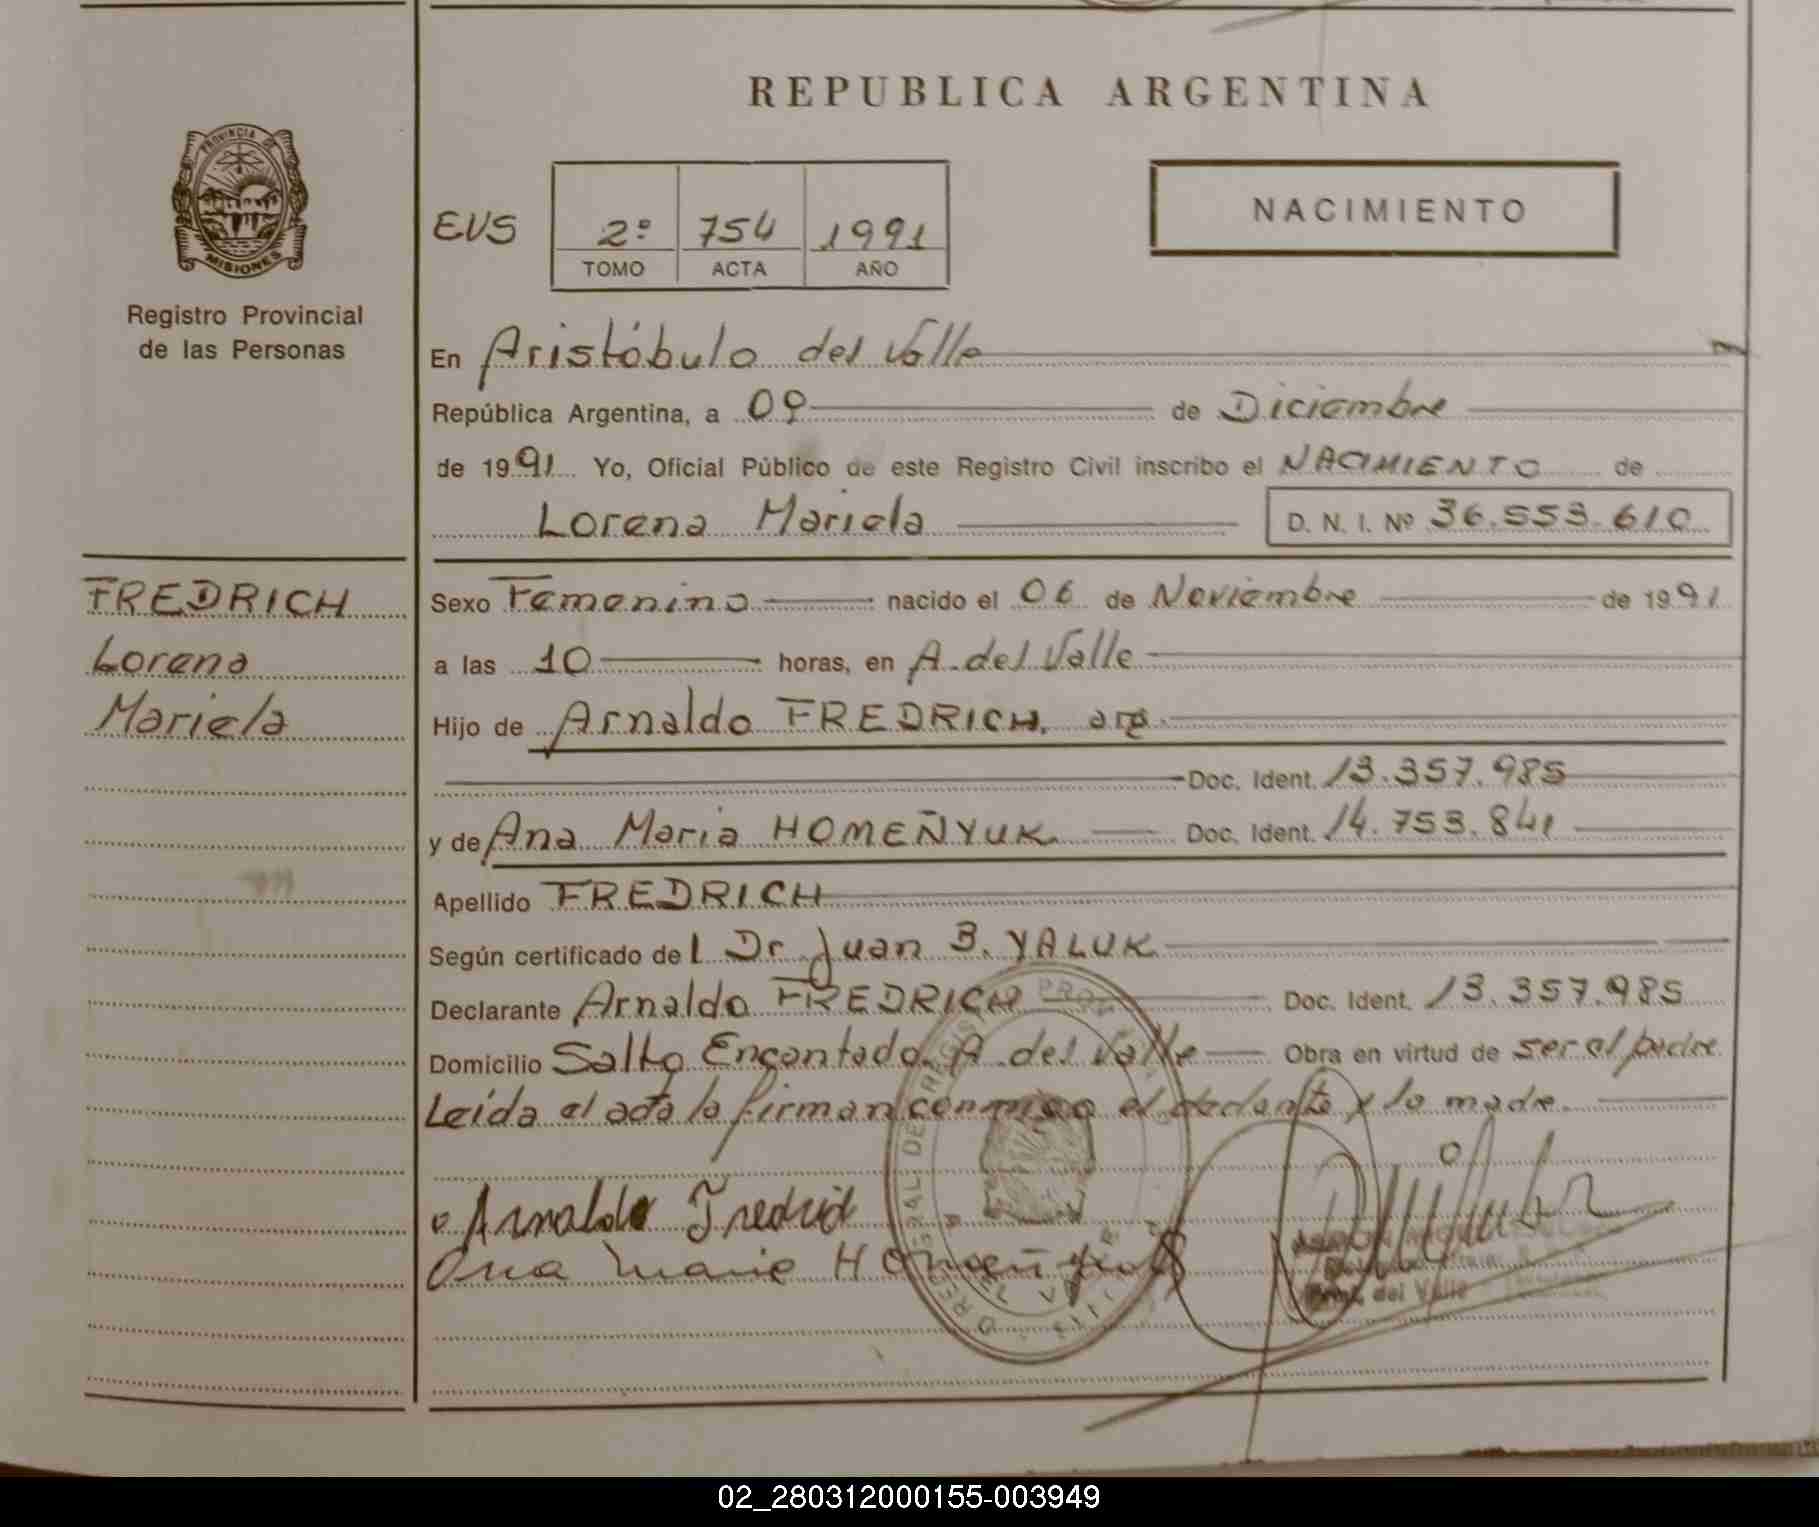 REPUBLICA ARGENTINA
PROVINCIA DE
MISIONES
Registro Provincial
de las Personas
EVS
2º 754 1991
TOMO ACTA AÑO
NACIMIENTO
En Aristóbulo del Valle
República Argentina, a 09 de Diciembre
de 1991 Yo, Oficial Público de este Registro Civil inscribo el NACIMIENTO de
Lorena Mariela D. N. I. Nº 36.553.610
FREDRICH
Lorena
Mariela
Sexo Femenino nacido el 06 de Noviembre de 1991
a las 10 horas, en A. del Valle
Hijo de Arnaldo FREDRICH, arg.
Doc. Ident. 13.357.985
y de Ana Maria HOMEÑYUK Doc. Ident. 14.753.841
Apellido FREDRICH
Según certificado de l Dr. Juan B. YALUK
Declarante Arnaldo FREDRICH Doc. Ident. 13.357.985
Domicilio Salto Encantado, A. del Valle Obra en virtud de ser el padre
Leída el acta la firman conmigo el declante y la madre.
Arnaldo Fredrich
Ana Maria Homeñyuk
del Valle
02_280312000155-003949